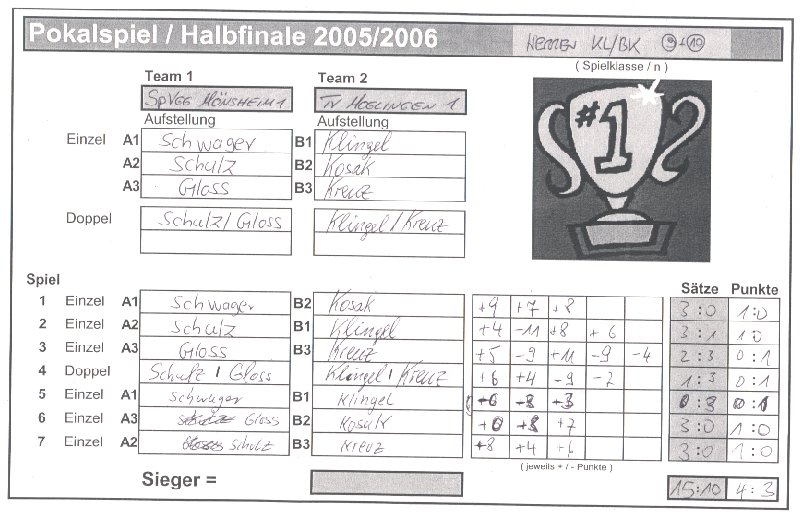 Pokalspiel / Halbfinale 2005/2006 HERREN KL/BK 9+10
( Spielklasse / n )
Team 1 Team 2
SpVGG MÖNSHEIM 1 TV MOGLINGEN 1
Aufstellung Aufstellung
#1
Einzel A1 Schwager B1 Klingel
A2 Schulz B2 Kosak
A3 Gloss B3 Kreuz
Doppel Schulz / Gloss Klingel / Kreuz
Spiel Sätze Punkte
1 Einzel A1 Schwager B2 Kosak +9 +7 +8 3:0 1:0
2 Einzel A2 Schulz B1 Klingel +4 -11 +8 +6 3:1 1:0
3 Einzel A3 Gloss B3 Kreuz +5 -9 +11 -9 -4 2:3 0:1
4 Doppel Schulz / Gloss Klingel / Kreuz +6 +4 -9 -7 1:3 0:1
5 Einzel A1 Schwager B1 Klingel -8 0:3 0:1
6 Einzel A3 Gloss B2 Kosak +8 +7 3:0 1:0
7 Einzel A2 Schulz B3 Kreuz +8 +4 +6 3:0 1:0
( jeweils + / - Punkte )
Sieger = 15:10 4:3